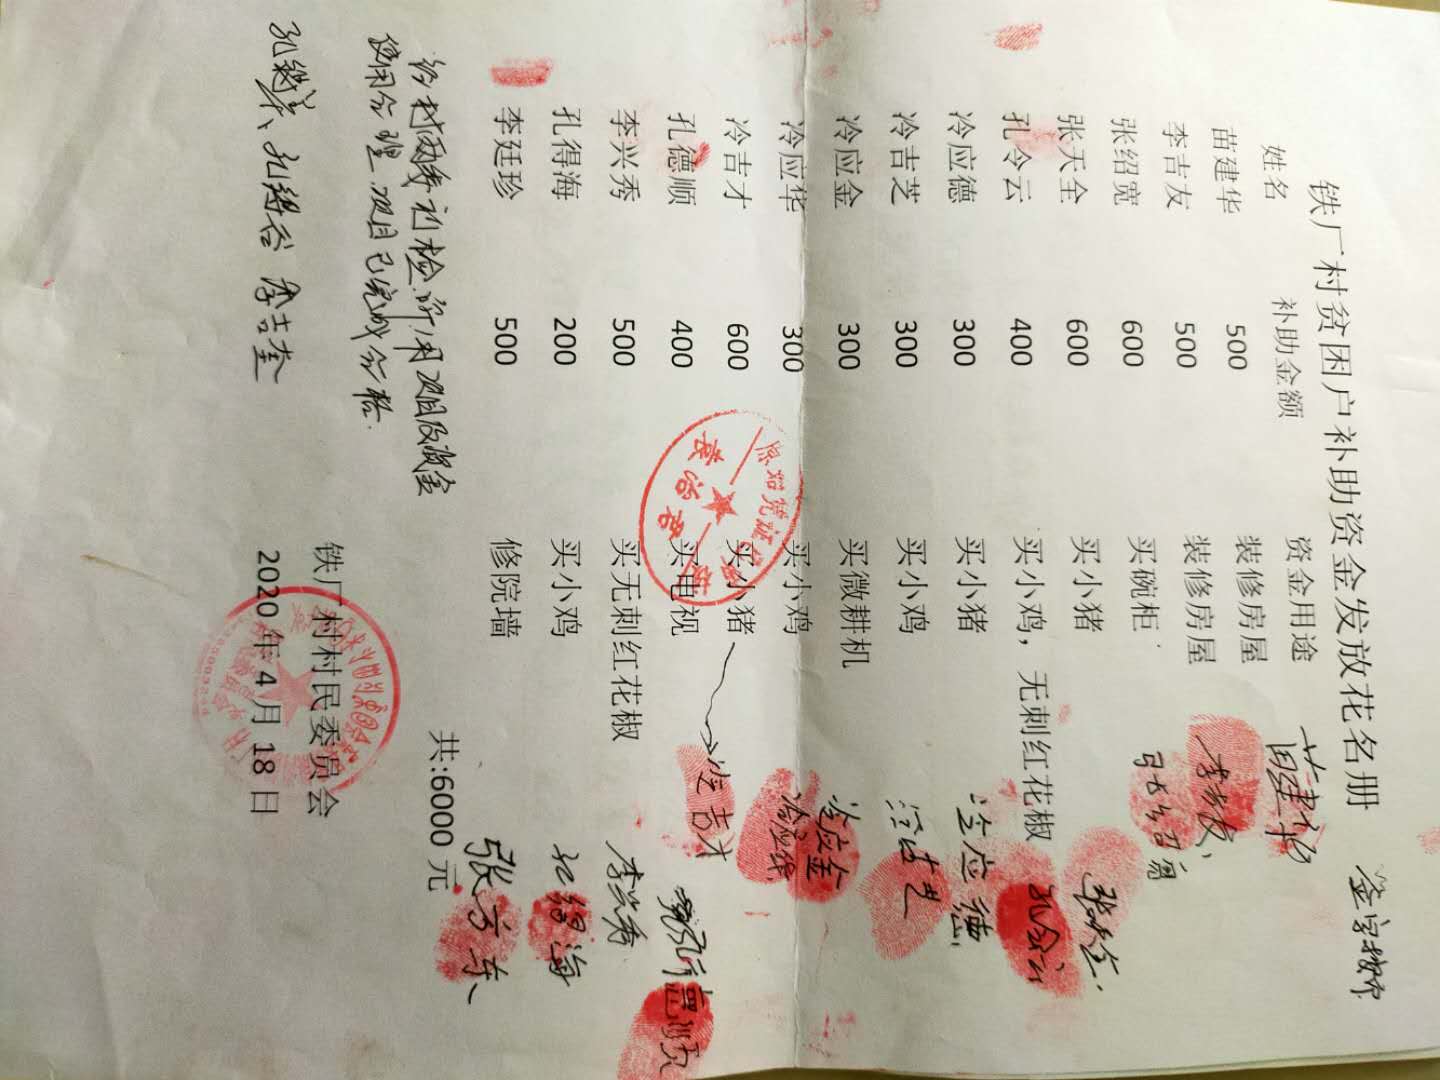 铁厂村贫困户补助资金发放花名册
姓名 补助金额 资金用途 签字按印
苗建华 500 装修房屋 苗建华
李吉友 500 装修房屋 李吉友
张绍宽 600 买碗柜 张绍宽
张天全 600 买小猪 张天全
孔令云 400 买小鸡，无刺红花椒 孔令云
冷应德 300 买小猪 冷应德
冷吉芝 300 买小鸡 冷吉芝
冷应金 300 买微耕机 冷应金
冷应华 300 买小鸡
冷吉才 600 买小猪 冷吉才
孔德顺 400 买电视 孔德顺
李兴秀 500 买无刺红花椒 李兴秀
孔得海 200 买小鸡 孔得海
李廷珍 500 修院墙
共:6000 元
经村两委社检，所用项目及资金
使用合理，项目已完成合格.
李吉奎
铁厂村村民委员会
2020 年 4 月 18 日
袁治君